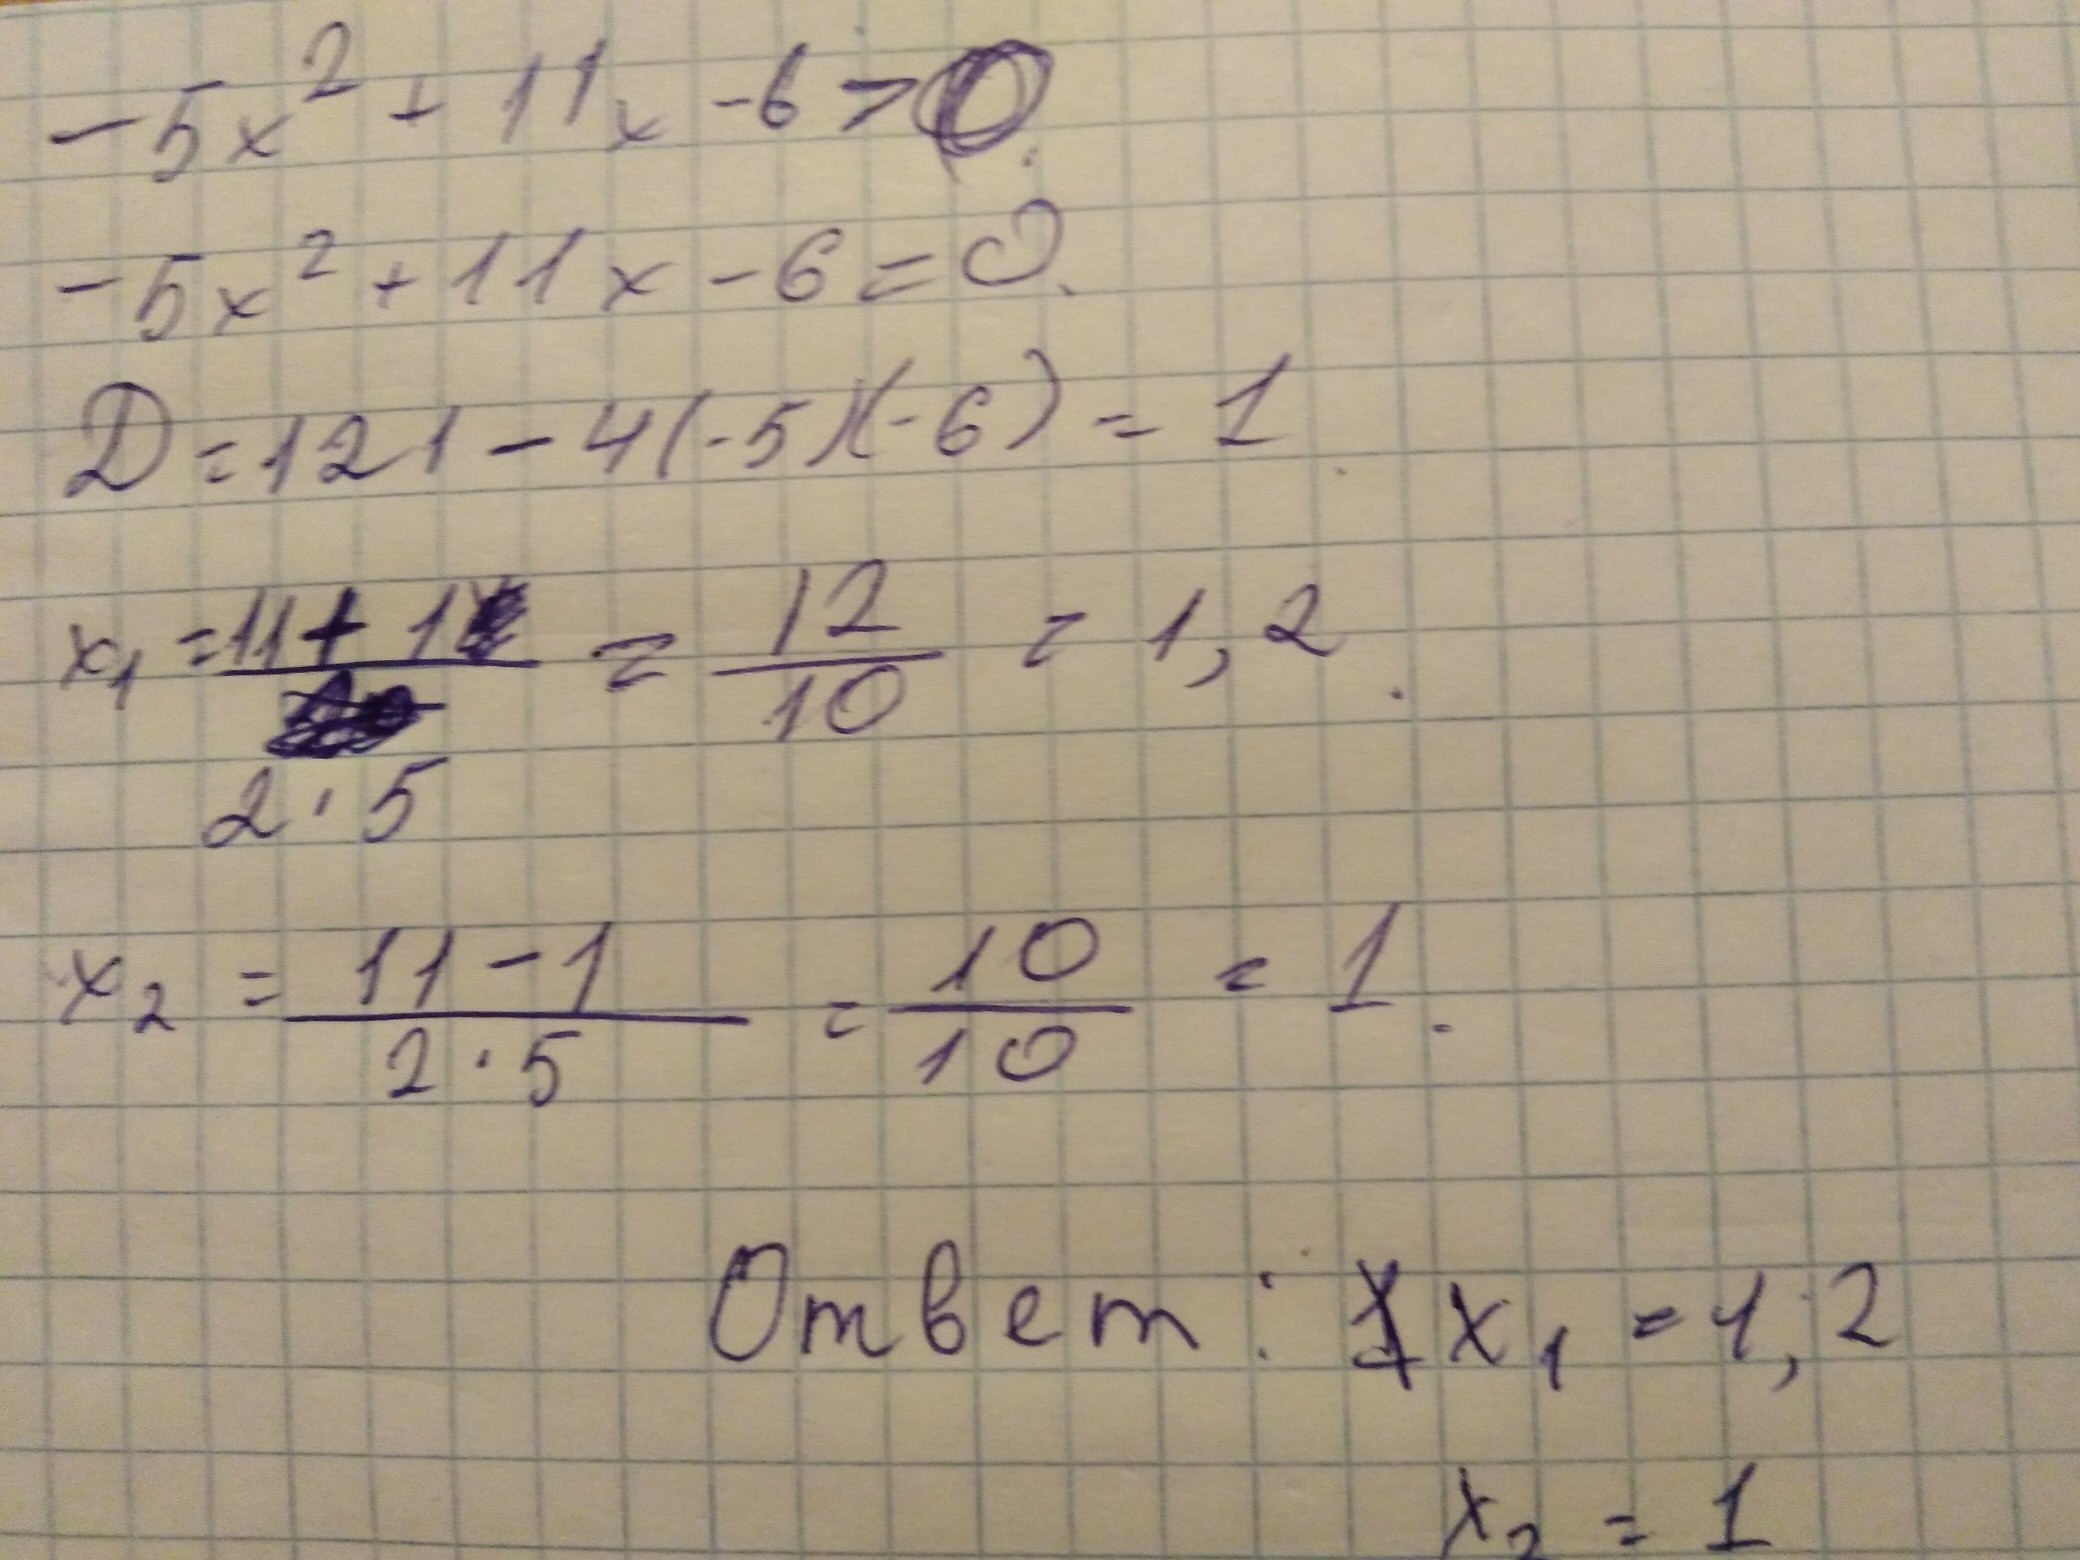 -5x² + 11x - 6 > 0.
-5x² + 11x - 6 = 0.
D = 121 - 4(-5)(-6) = 1.
x₁ = (11 + 1)/(2 · 5) = 12/10 = 1,2.
x₂ = (11 - 1)/(2 · 5) = 10/10 = 1.
Ответ: x₁ = 1,2
x₂ = 1